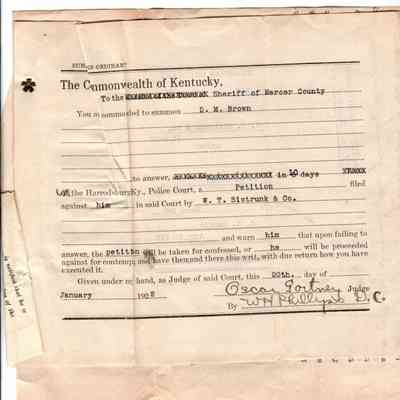 SUMMONS—ORDINARY
The Commonwealth of Kentucky,
To the Sheriff of Mercer County
You are commanded to summon D. M. Brown
to answer, in 10 days
of the Harrodsburg Ky., Police Court, a Petition filed
against him in said Court by W. T. Sistrunk & Co.
and warn him that upon failing to
answer, the petition will be taken for confessed, or he will be proceeded
against for contempt; and have then and there this writ, with due return how you have
executed it.
Given under my hand, as Judge of said Court, this 20th. day of
January 192
Oscar Judge
By W H Phillips D. C.